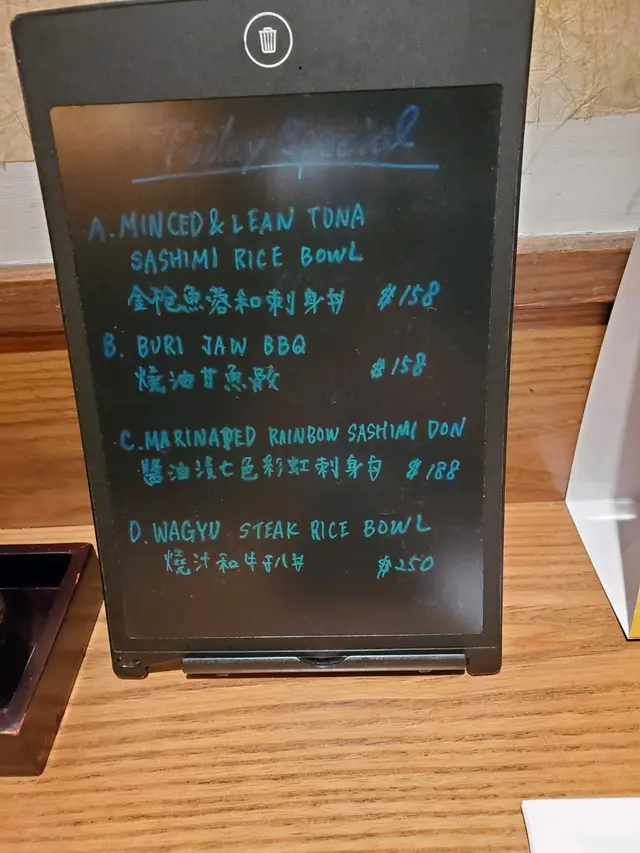 Today Special
A. MINCED & LEAN TUNA
SASHIMI RICE BOWL
金枪魚蓉和刺身丼 $158
B. BURI JAW BBQ
燒油甘魚鮫 $158
C. MARINATED RAINBOW SASHIMI DON
醬油漬七色彩虹刺身丼 $188
D. WAGYU STEAK RICE BOWL
燒汁和牛扒丼 $250